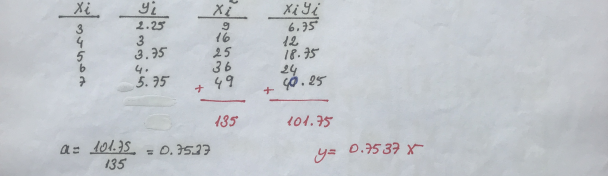 xi yi xi² xiyi
3 2.25 9 6.75
4 3 16 12
5 3.75 25 18.75
6 4. 36 24
7 5.75 + 49 + 40.25
135 101.75
a = 101.75 / 135 = 0.7537 y = 0.7537 x